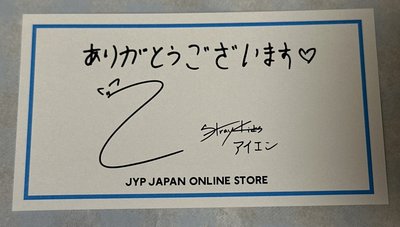 ありがとうございます♡
Stray Kids
アイエン
JYP JAPAN ONLINE STORE